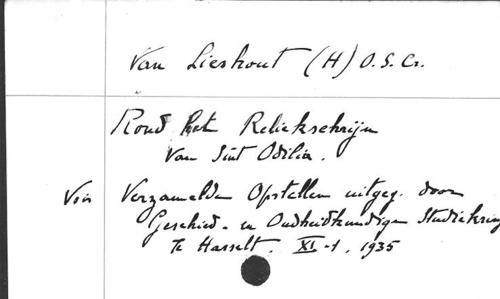 Van Lieshout (H) O.S.Cr.
Rond het Reliekschrijn
Van Sint Odilia.
Voir Verzamelde Opstellen uitgeg. door
Geschied- en Oudheidkundigen Studiekring
Te Hasselt. XI-1. 1935